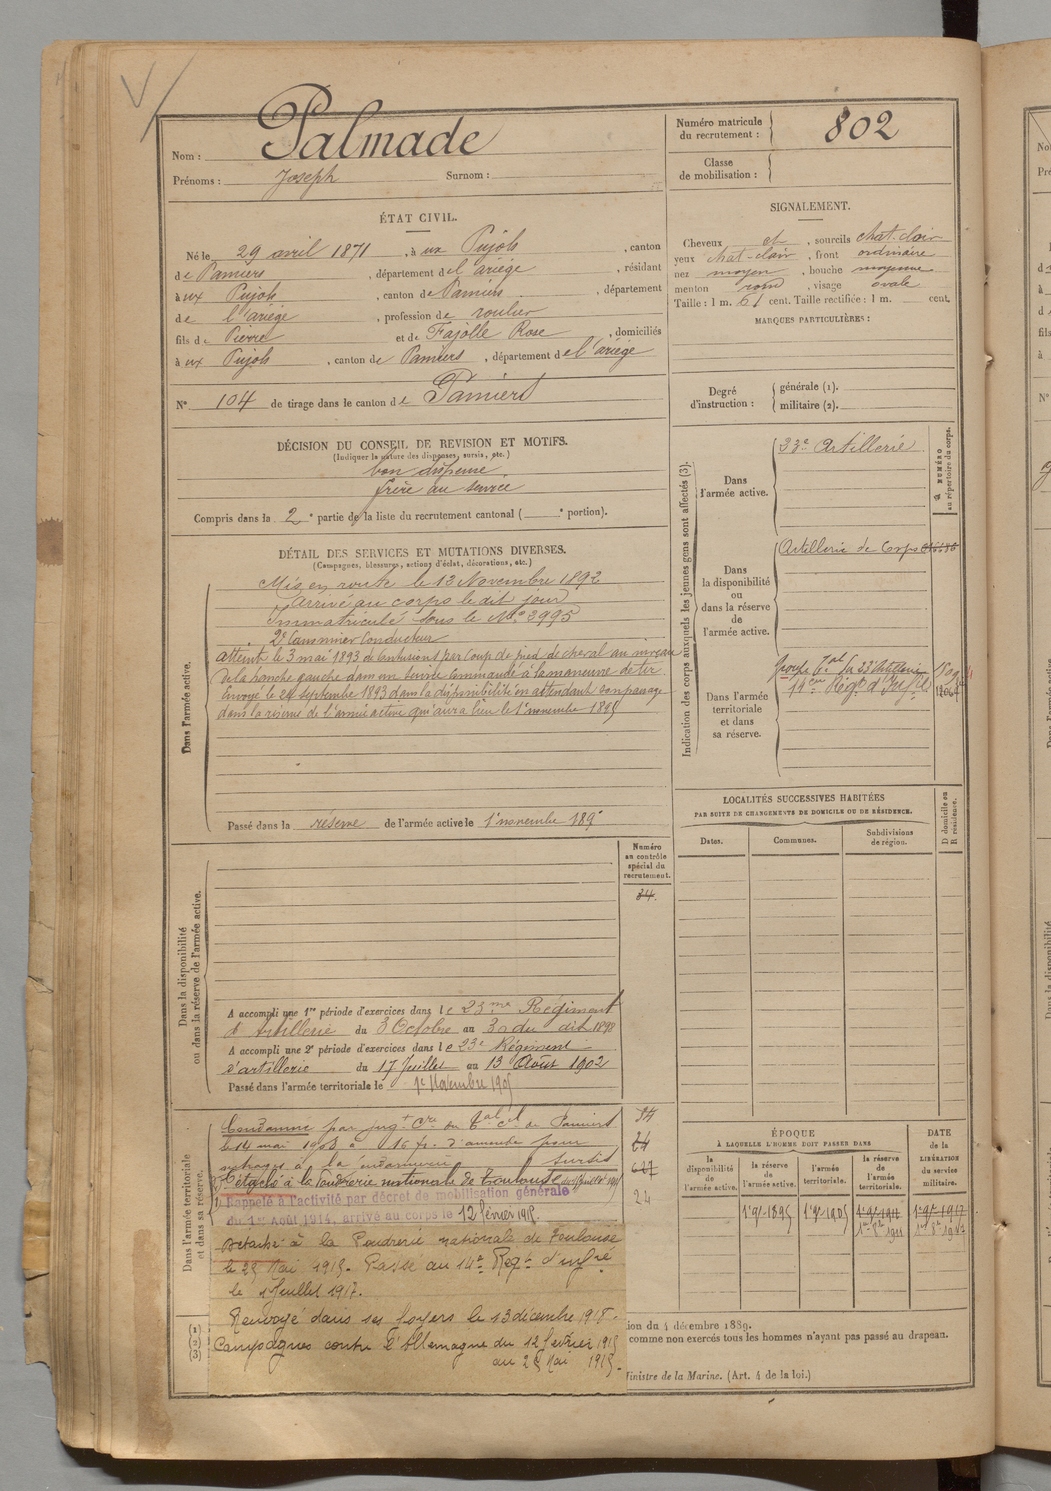 V
Palmade
Nom :
Prénoms : Joseph Surnom :
Numéro matricule du recrutement : 802
Classe de mobilisation :
ÉTAT CIVIL.
Né le 29 avril 1871, à ux Pujols, canton
de Pamiers, département de l'ariège, résidant
à ux Pujols, canton de Pamiers, département
de l'ariège, profession de roulier
fils de Pierre et de Fajolle Rose, domiciliés
à ux Pujols, canton de Pamiers, département de l'ariège
N° 104 de tirage dans le canton de Pamiers
SIGNALEMENT.
Cheveux et, sourcils chat-clair
yeux chat-clair, front ordinaire
nez moyen, bouche moyenne
menton rond, visage ovale
Taille : 1 m. 61 cent. Taille rectifiée : 1 m. cent.
MARQUES PARTICULIÈRES :
Degré d'instruction : générale (1).
militaire (2).
DÉCISION DU CONSEIL DE REVISION ET MOTIFS.
(Indiquer la nature des dispenses, sursis, etc.)
bon dispensé
frère au service
Compris dans la 2e partie de la liste du recrutement cantonal ( e portion).
DÉTAIL DES SERVICES ET MUTATIONS DIVERSES.
(Campagnes, blessures, actions d'éclat, décorations, etc.)
Dans l'armée active.
Mis en route le 12 Novembre 1892
arrivé au corps le dit jour
Immatriculé sous le No 3995
2e Canonnier Conducteur
atteint le 3 mai 1893 de contusions par coup de pied de cheval au niveau
de la hanche gauche dans un service commandé à la manœuvre de tir
Envoyé le 24 septembre 1893 dans la disponibilité en attendant son passage
dans la réserve de l'armée active qui aura lieu le 1er novembre 1895
Passé dans la réserve de l'armée active le 1er novembre 1895
Dans la disponibilité ou dans la réserve de l'armée active.
Numéro au contrôle spécial du recrutement.
34
A accompli une 1re période d'exercices dans le 23me Régiment
d'Artillerie du 3 Octobre au 30 du dit 1898
A accompli une 2e période d'exercices dans le 23e Régiment
d'artillerie du 17 Juillet au 13 Août 1902
Passé dans l'armée territoriale le 1er Novembre 1905
Dans l'armée territoriale et dans sa réserve.
Condamné par jugt Cre du Tal Cl de Pamiers
le 14 mai 1908 à 16 fr. d'amende pour
outrages à la gendarmerie sursis
Détaché à la Poudrerie nationale de Toulouse
Rappelé à l'activité par décret de mobilisation générale
du 1er Août 1914, arrivé au corps le 12 février 1915.
24
détaché à la Poudrerie nationale de Toulouse
le 25 Mai 1915. Passé au 14e Regt d'infrie
le 1er Juillet 1917.
Renvoyé dans ses foyers le 13 décembre 1918.
Campagnes contre l'Allemagne du 12 février 1915
au 25 Mai 1915.
(1)
(2)
(3)
Indication des corps auxquels les jeunes gens sont affectés (3).
NUMÉRO au répertoire du corps.
Dans l'armée active.
33e Artillerie
Dans la disponibilité ou dans la réserve de l'armée active.
Artillerie de Corps
Dans l'armée territoriale et dans sa réserve.
groupe Tal du 23 Artillerie
14eme Régt d'Infie
LOCALITÉS SUCCESSIVES HABITÉES
PAR SUITE DE CHANGEMENTS DE DOMICILE OU DE RÉSIDENCE.
Dates.
Communes.
Subdivisions de région.
D domicile ou R résidence.
ÉPOQUE
À LAQUELLE L'HOMME DOIT PASSER DANS
la disponibilité de l'armée active.
la réserve de l'armée active.
l'armée territoriale.
la réserve de l'armée territoriale.
DATE de la LIBÉRATION du service militaire.
1er 9bre 1895
1er 9bre 1905
1er 9bre 1911
1er 9bre 1917
ion du 4 décembre 1889.
comme non exercés tous les hommes n'ayant pas passé au drapeau.
Ministre de la Marine. (Art. 4 de la loi.)